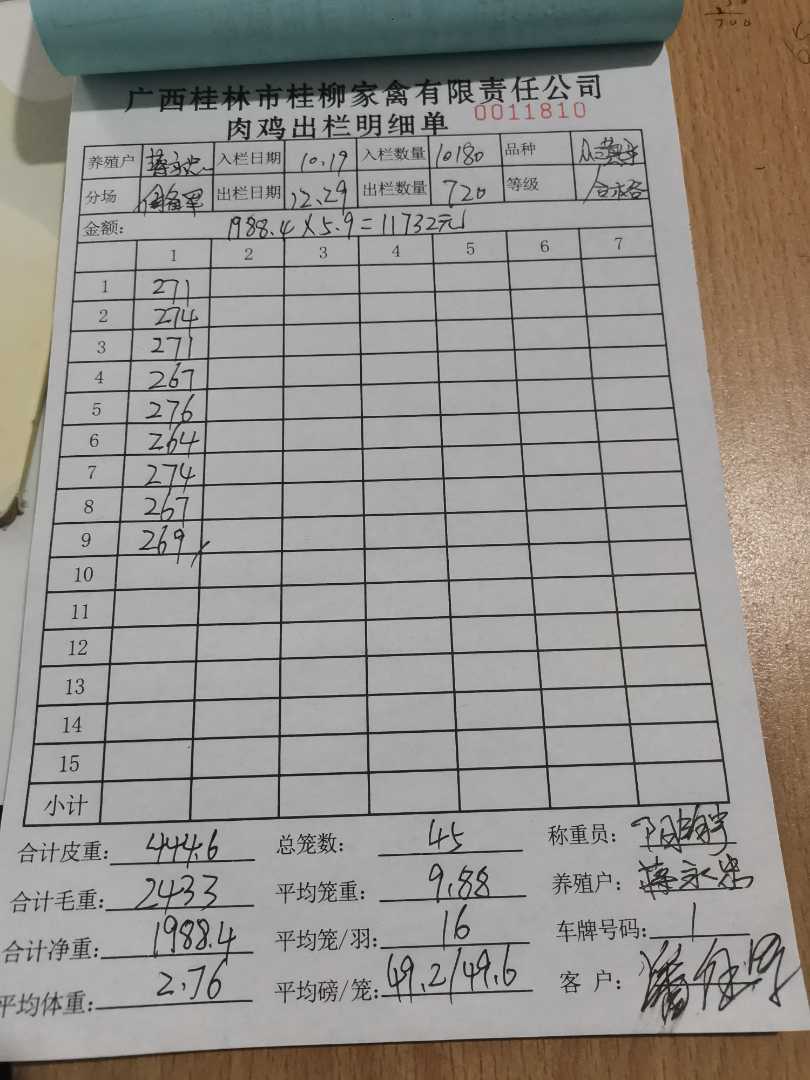 广西桂林市桂柳家禽有限责任公司
肉鸡出栏明细单 0011810
养殖户 蒋永忠 入栏日期 10.19 入栏数量 10180 品种
分场 出栏日期 12.29 出栏数量 720 等级 合格
金额: 1988.4×5.9=11732元
1 2 3 4 5 6 7
1 271
2 274
3 271
4 267
5 276
6 264
7 274
8 267
9 269
10
11
12
13
14
15
小计
合计皮重: 444.6 总笼数: 45 称重员:
合计毛重: 2433 平均笼重: 9.88 养殖户: 蒋永忠
合计净重: 1988.4 平均笼/羽: 16 车牌号码: 1
平均体重: 2.76 平均磅/笼: 49.2/49.6 客 户: